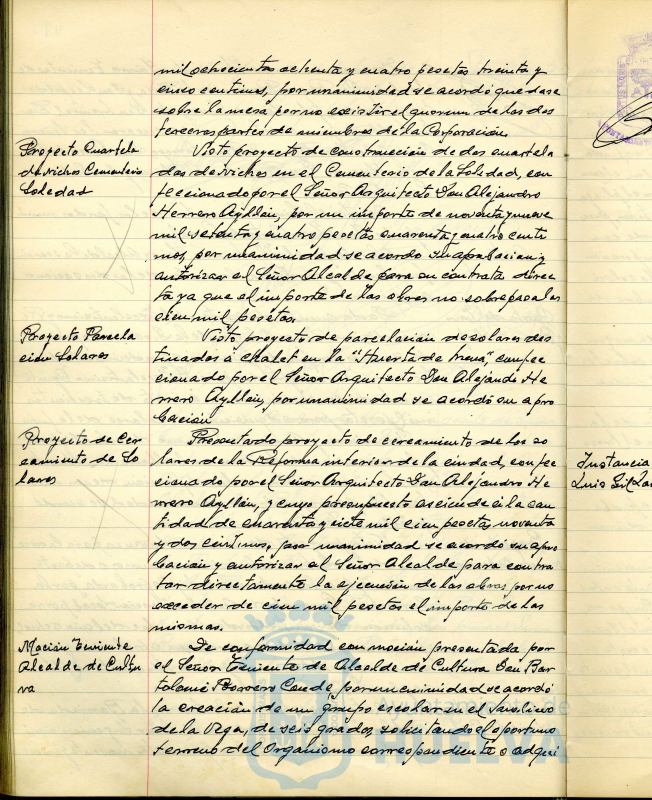 mil ochocientas ochenta y cuatro pesetas treinta y
cinco centimos, por unanimidad se acordó quedase
sobre la mesa por no existir el quorum de las dos
terceras partes de miembros de la Corporación.
Proyecto Cuartela
da nichos Cementerio
Soledad
Visto proyecto de construcción de dos cuartela
das de nichos en el Cementerio de la Soledad, con
feccionado por el Señor Arquitecto Don Alejandro
Herrero Ayllón, por un importe de noventa y nueve
mil setenta y cuatro pesetas cuarenta y cuatro centi
mos, por unanimidad se acordó su aprobación y
autorizar al Señor Alcalde para su contrata direc
ta ya que el importe de las obras no sobrepasa las
cien mil pesetas.
Proyecto Parcela
cion Solares
Visto proyecto de parcelación de solares des
tinados á chalet en la "Huerta de Mena", confec
cionado por el Señor Arquitecto Don Alejandro He
rrero Ayllón, por unanimidad se acordó su apro
bación
Proyecto de Cer
camiento de So
lares
Presentado proyecto de cercamiento de los so
lares de la Reforma interior de la ciudad, confec
cionado por el Señor Arquitecto Don Alejandro He
rrero Ayllón, y cuyo presupuesto asciende á la can
tidad de cuarenta y siete mil cien pesetas noventa
y dos centimos, por unanimidad se acordó su apro
bación y autorizar al Señor Alcalde para contra
tar directamente la ejecución de las obras por no
exceder de cien mil pesetas el importe de las
mismas.
Moción Teniente
Alcalde de Cultu
ra
De conformidad con moción presentada por
el Señor Teniente de Alcalde de Cultura Don Bar
tolomé Borrero Conde, por unanimidad se acordó
la creación de un grupo escolar en el Molino
de la Vega, de seis grados, solicitando el oportuno
terreno del Organismo correspondiente o adqui
Instancia
Luis Gil
HUELVA